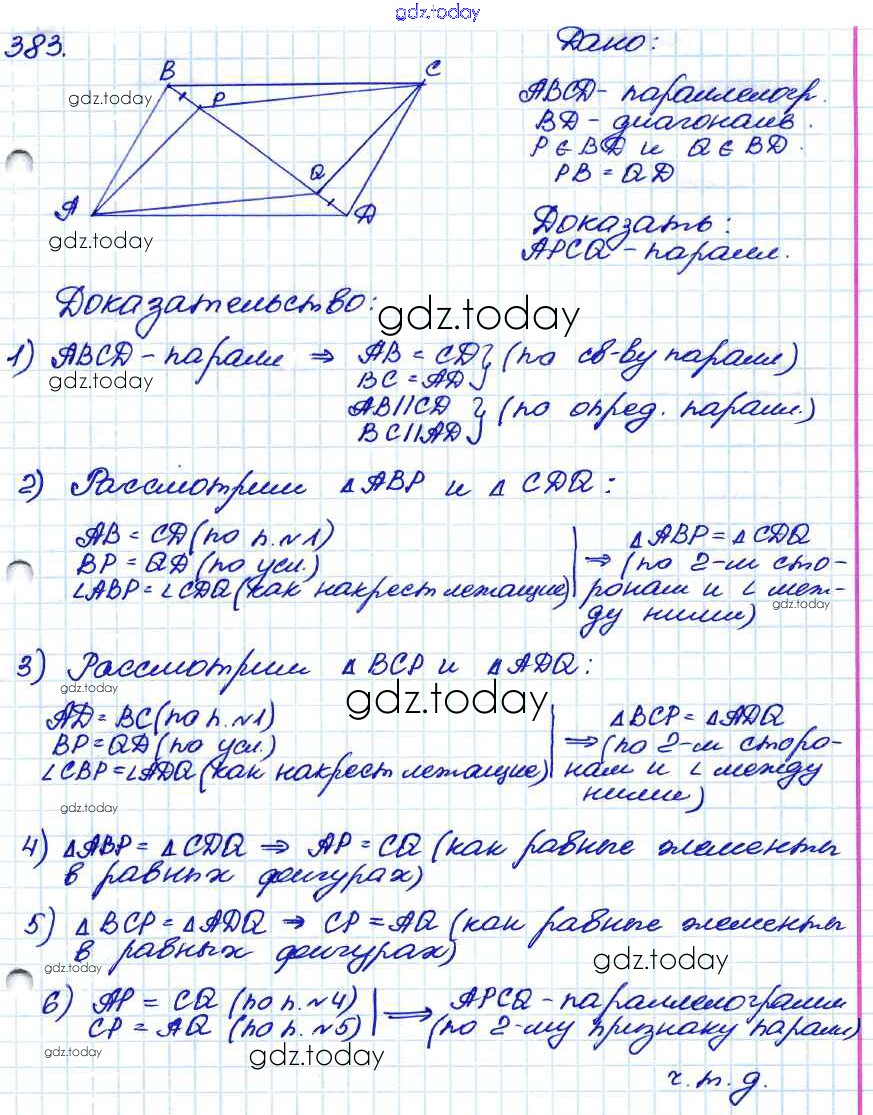 gdz.today
383.
Дано:
B
C
gdz.today
P
ABCD - параллелогр.
BD - диагональ.
P ∈ BD и Q ∈ BD.
PB = QD
Q
A
D
gdz.today
Доказать:
APCQ - паралл.
Доказательство:
gdz.today
1) ABCD - паралл ⇒ AB = CD } (по св-ву паралл)
gdz.today
BC = AD }
AB||CD } (по опред. паралл.)
BC||AD }
2) Рассмотрим △ABP и △CDQ:
AB = CD (по п.№1)
BP = QD (по усл.)
∠ABP = ∠CDQ (как накрест лежащие)
△ABP = △CDQ
⇒ (по 2-м сто-
ронам и ∠ меж-
gdz.today
ду ними)
3) Рассмотрим △BCP и △ADQ:
gdz.today
gdz.today
AD = BC (по п.№1)
BP = QD (по усл.)
∠CBP = ∠ADQ (как накрест лежащие)
△BCP = △ADQ
⇒ (по 2-м сторо-
нам и ∠ между
ними)
gdz.today
4) △ABP = △CDQ ⇒ AP = CQ (как равные элементы
в равных фигурах)
5) △BCP = △ADQ ⇒ CP = AQ (как равные элементы
в равных фигурах)
gdz.today
gdz.today
6) AP = CQ (по п.№4) | ⇒ APCQ - параллелограмм
CP = AQ (по п.№5) | (по 2-му признаку паралл)
gdz.today
gdz.today
ч.т.д.